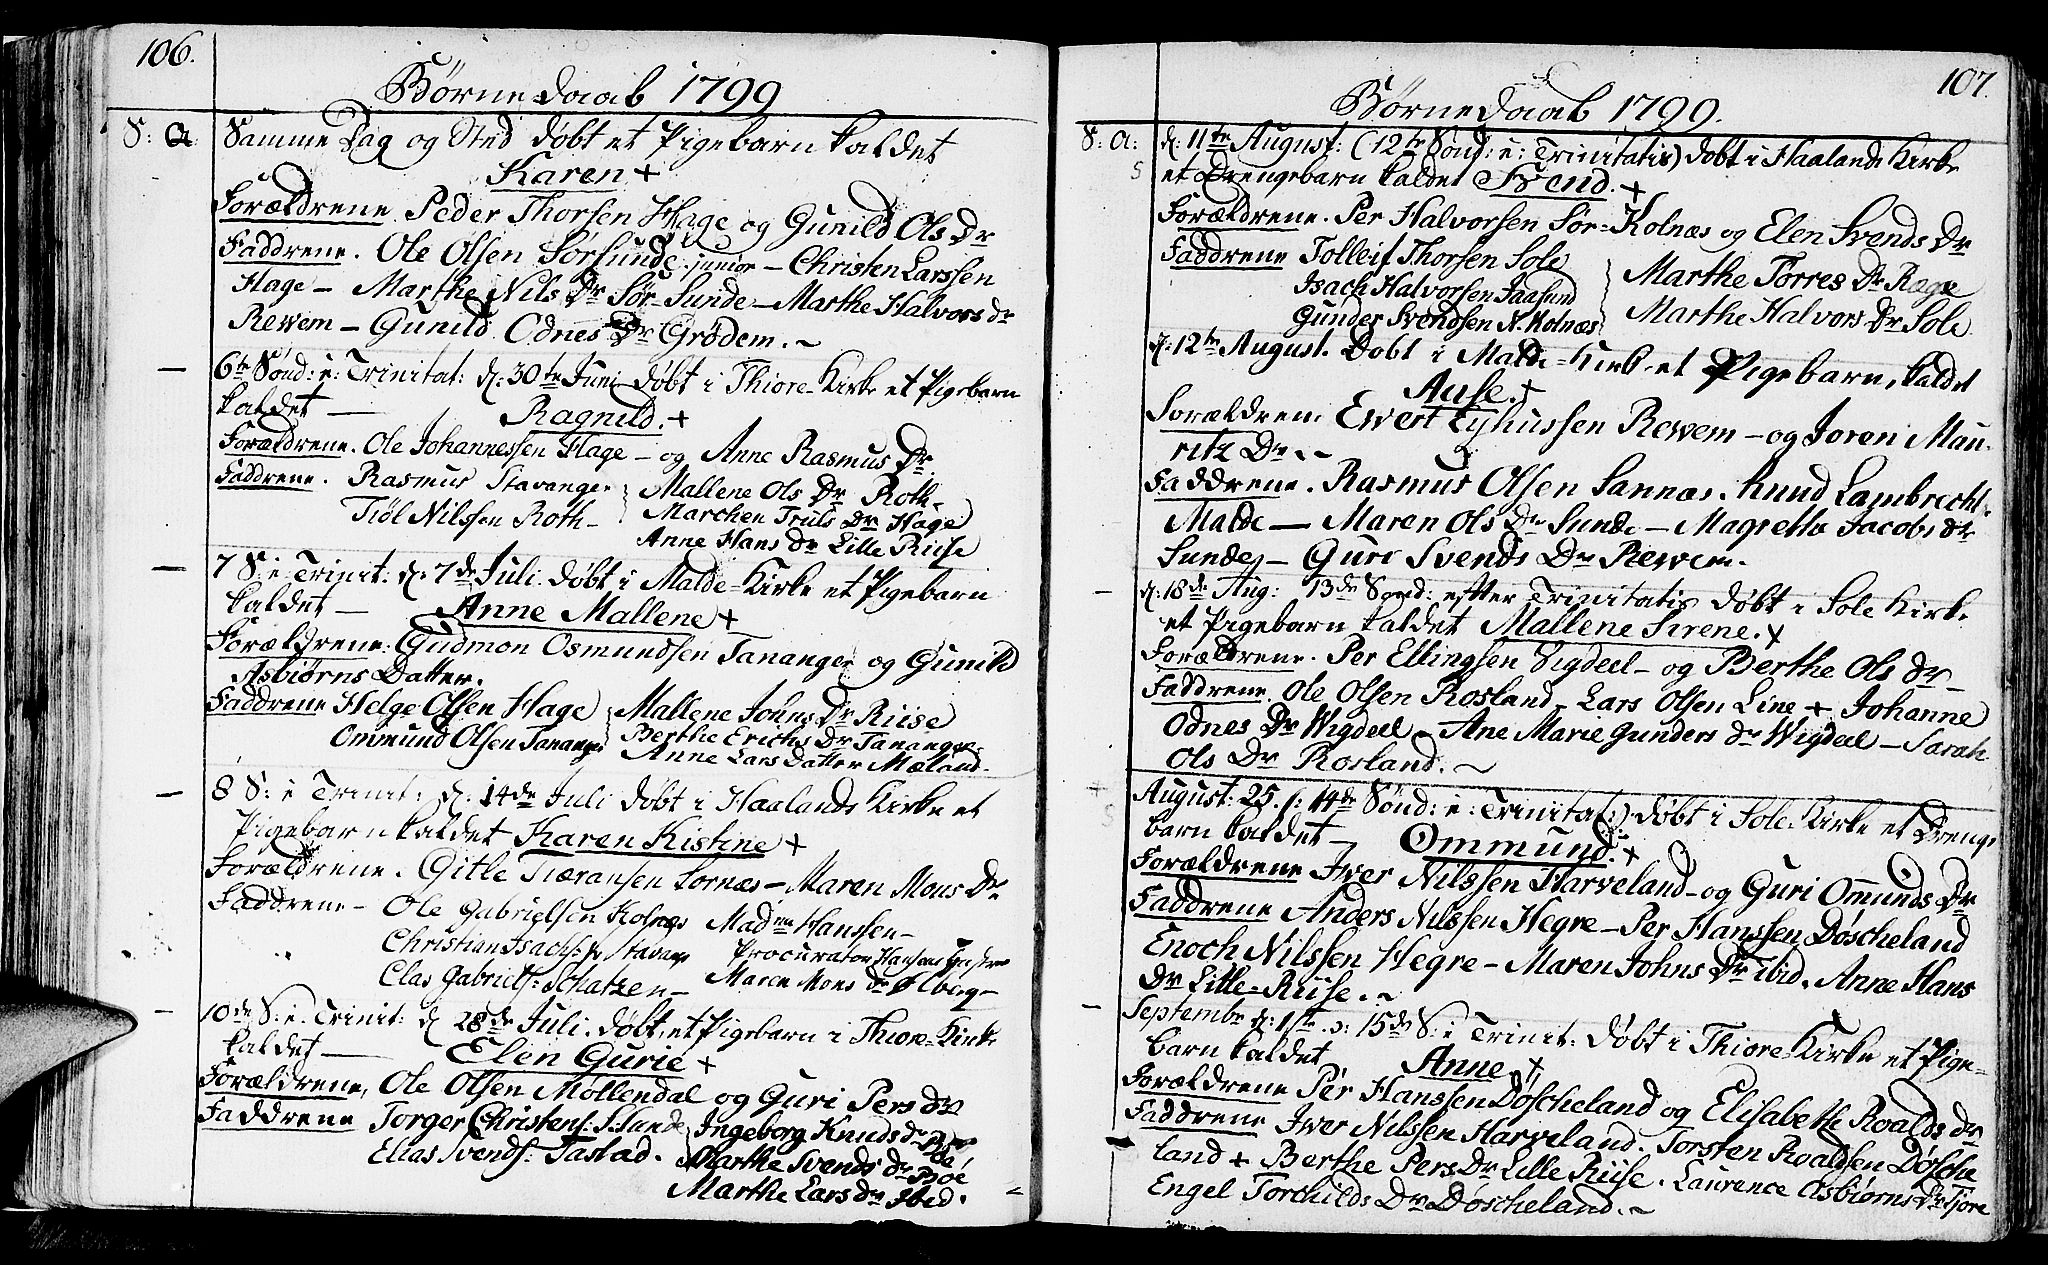 106.
Børnedaab 1799
S: a: Samme Dag og Sted døbt et Pigebarn kaldet
Karen +
Forældrene. Peder Thorsen Hage og Gunild Ols Dr
Faddrene. Ole Olsen Sørsunde junior – Christen Larssen
Hage – Marthe Nils Dr Sør Sunde – Marthe Halvors dr
Rewem – Gunild Odnes Dr Grødem. ~
– 6te Sønd: e: Trinitat: d: 30te Juni døbt i Thiore-Kirke et Pigebarn
kaldet — Ragnild. +
Forældrene. Ole Johannessen Hage – og Anne Rasmus Dr.
Faddrene. Rasmus Stavanger Mallene Ols Dr Roth-
Tiøl Nilssen Roth- Marchen Truls Dr Hage
Anne Hans dr Lille Riise
– 7 S: e: Trinit: d. 7de Juli døbt i Malde-Kirke et Pigebarn
kaldet — Anne Mallene +
Forældrene: Gudmon Osmundsen Tananger og Gunild
Asbiørns Datter.
Faddrene Helge Olssen Hage Mallene Jonns Dr Riise
Ommund Olsen Tananger Berthe Erichs Dr Tananger
Anne Lars Datter Mæland.
– 8 S: e Trinit: d. 14de Juli døbt i Haalands Kirke et
Pigebarn kaldet Karen Kistine +
Forældrene. Gitle Tiæransen Sornæs – Maren Mons Dr
Faddrene – Ole Gabrielsen Kolnæs Madme Hanssen –
Christian Isachs: fr Stavang Procurator Hansens
Clas Gabriels: Schatzen – Maren Mons dr Ølberg –
– 10de S: e: Trinit: d 28de Juli. døbt et Pigebarn i Thiore-Kirke
kaldet — Elen Gurie +
Forældrene, Ole Olsen Møllendal og Guri Pers dr
Faddrene Torger Christens: S: Sande Ingeborg Knuds dr Bøe
Elias Svends: Tastad. Marthe Svends dr Bøe
Marthe Lars dr Ibid.
107.
Børnedaab 1799.
S: a: d: 11te August: (12te Sønd: e: Trinitatis) døbt i Haalands Kirke
5 et Drengebarn kaldet Svend. +
Forældrene. Per Halvorsen Sør-Kolnæs og Elen Svends Dr
Faddrene Tolleif Thorsen Sole Marthe Torres Dr Rege
Isach Halvorsen Jaasund Marthe Halvors Dr Sole
Gunder Svendsen N. Kolnæs
d: 12te August. Døbt i Malde-Kirke et Pigebarn, kaldet
Aase. +
Forældrene Ewert Eyhussen Rewem – og Joren Mau-
ritz Dr. ~
Faddrene. Rasmus Olsen Sannæs. Knud Lambrecht
Malde — Maren Ols Dr Sunde – Magrethe Jacobs dr
Sunde – Guri Svends Dr Rewem.
– d: 18de Aug: 13de Sønd: efter Trinitatis døbt i Sole Kirke
et Pigebarn kaldet Mallene Sirene. +
Forældrene. Per Ellingsen Vigdeel – og Berthe Ols dr –
Faddrene. Ole Olsen Rosland Lars Olsen Line + Johanne
Odnes Dr Wigdeel – Ane Marie Gunders dr Wigdeel – Sarah
Ols Dr Rosland. ~
5 August: 25. (: 14de Sønd: e: Trinitat:) døbt i Sole-Kirke et Drenge
barn kaldet – Ommund. +
Forældrene Iver Nilssen Harveland – og Guri Ommunds Dr
Faddrene Anders Nilssen Hegre – Per Hanssen Døscheland
Enoch Nilssen Hegre – Maren Johns Dr ibid. Anne Hans
Dr Lille-Riise. ~
– Septembr d: 1ste o: 15de S: e Trinit: døbt i Thiore-Kirke et Pige-
barn kaldet Anne +
Forældrene Per Hanssen Døscheland og Elisabeth Roalds dr
Faddrene Iver Nilssen Harveland. Torsten Roaldsen Døsche
land + Berthe Pers Dr Lille Riise. Laurence Asbiørns Dr Tjore
Engel Torchilds Dr Døscheland. ~